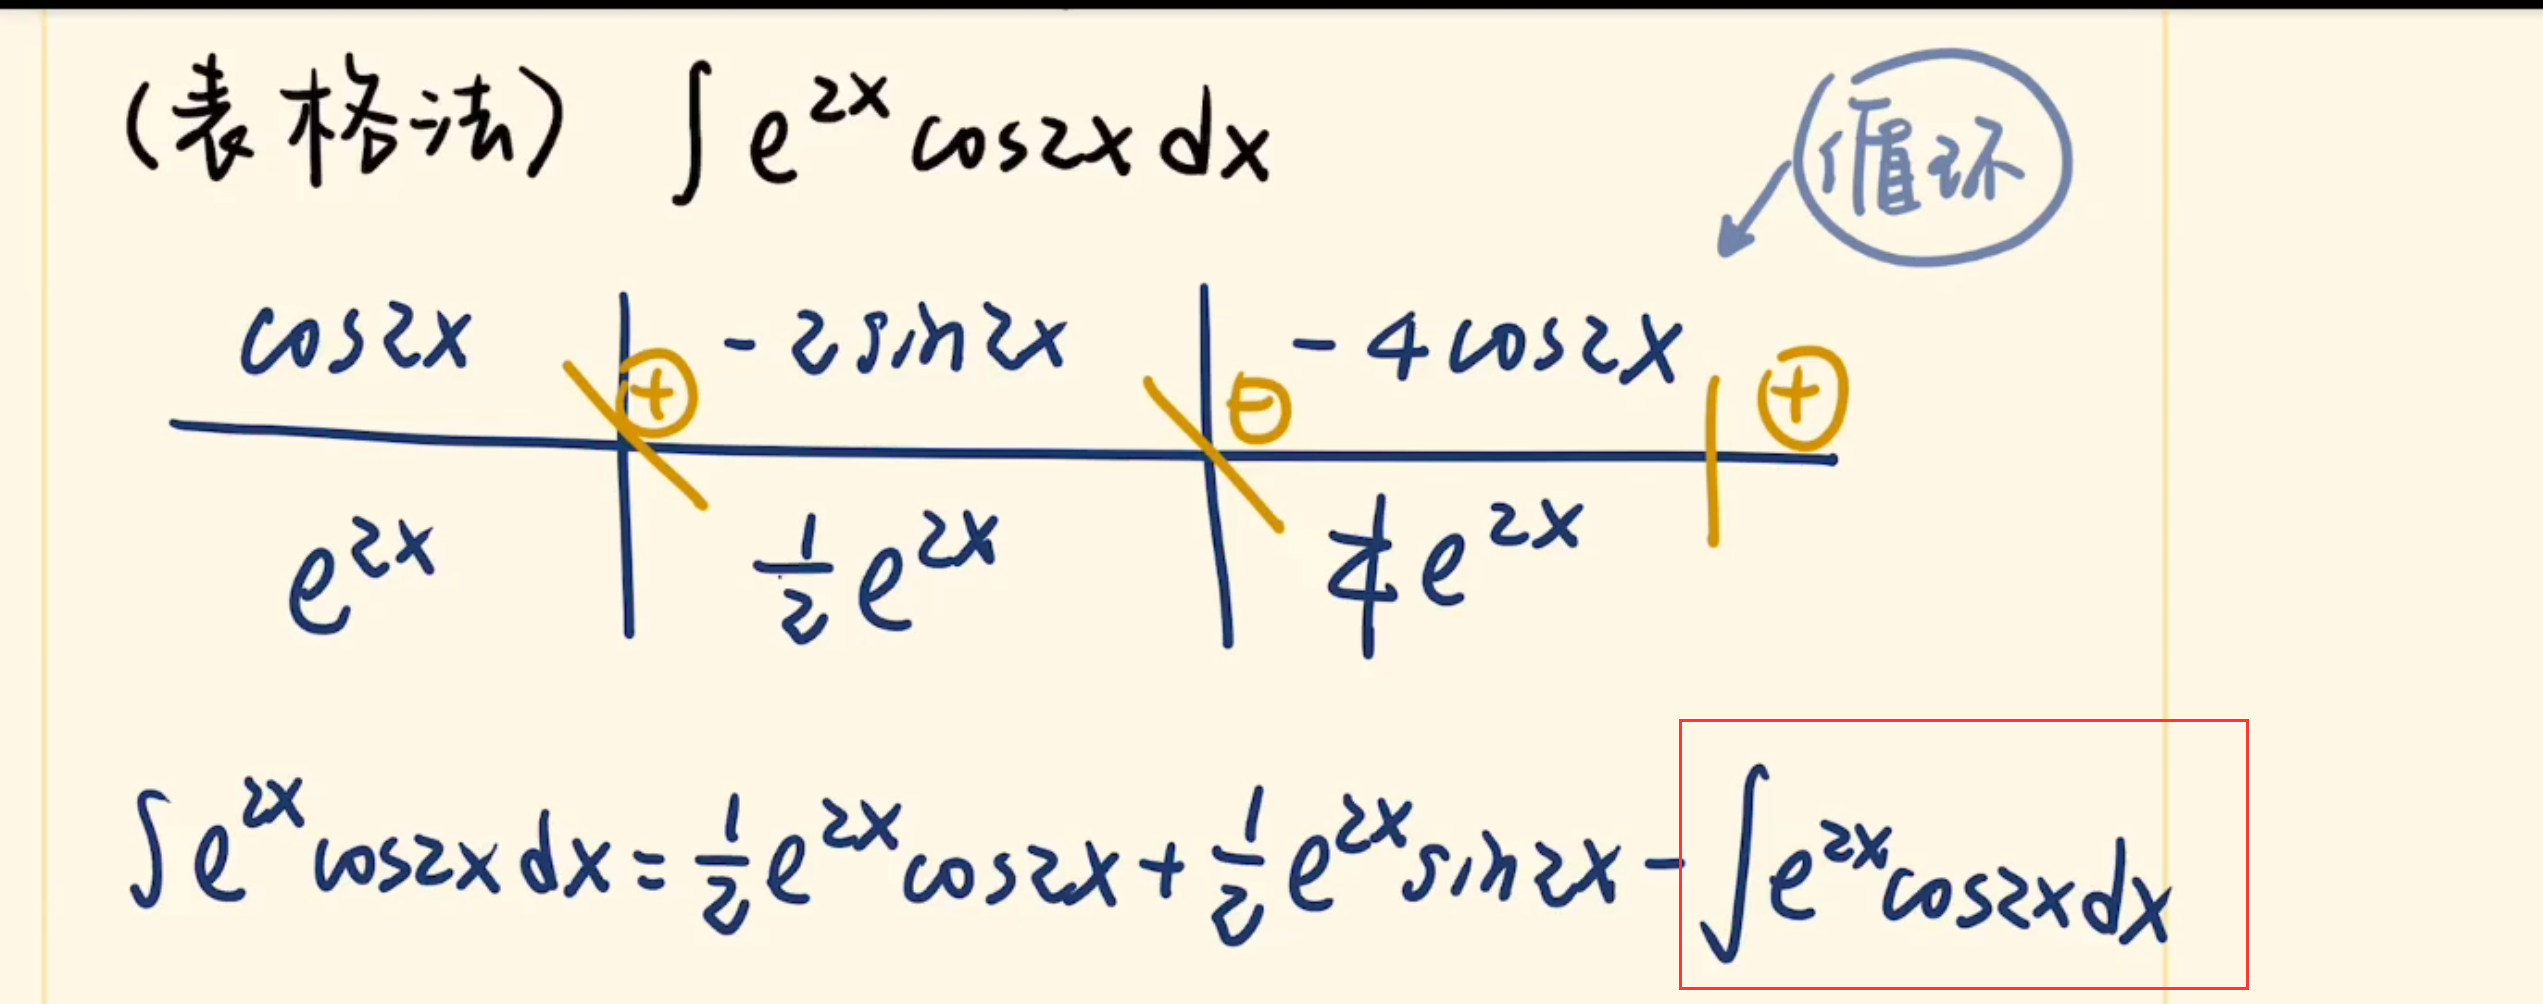 (表格法) ∫ e^{2x} cos2x dx
循环
cos2x | -2sin2x | -4cos2x
⊕ ⊖ ⊕
e^{2x} | \frac{1}{2} e^{2x} | \frac{1}{4} e^{2x}
∫ e^{2x} cos2x dx = \frac{1}{2} e^{2x} cos2x + \frac{1}{2} e^{2x} sin2x - ∫ e^{2x} cos2x dx